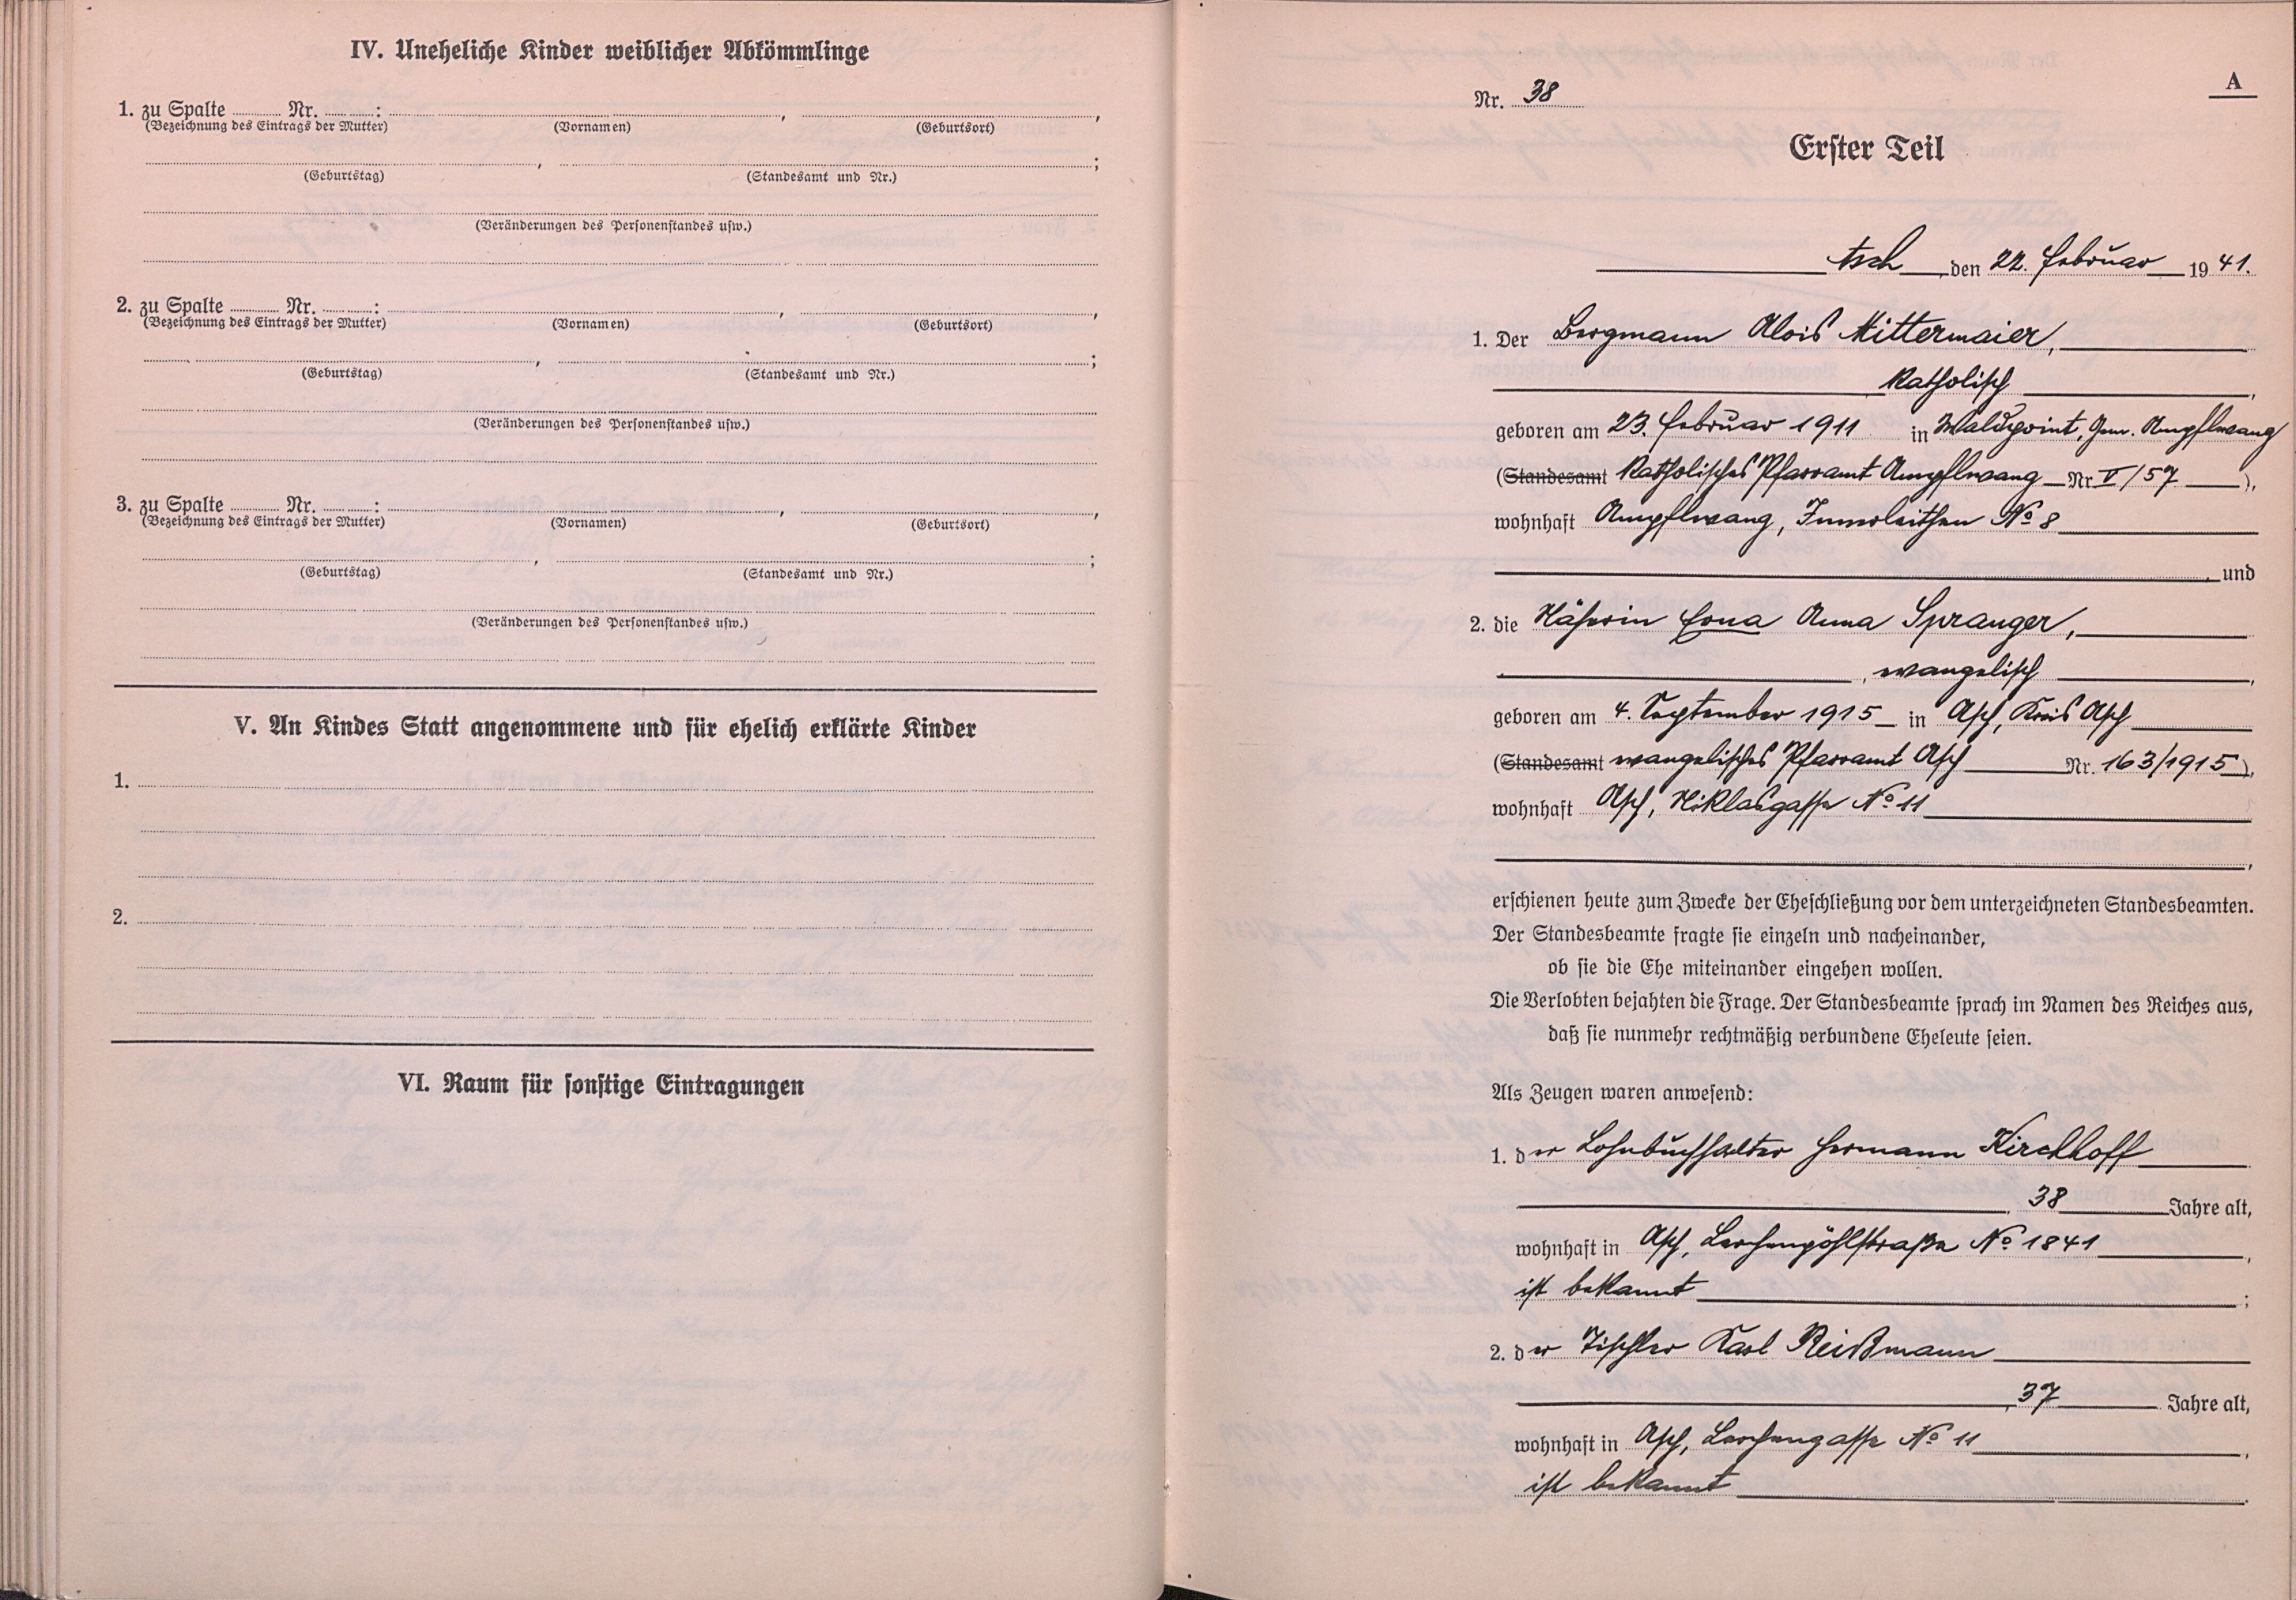 IV. Uneheliche Kinder weiblicher Abkömmlinge
1. zu Spalte ........ Nr. ........: , ,
(Bezeichnung des Eintrags der Mutter) (Vornamen) (Geburtsort)
, ;
(Geburtstag) (Standesamt und Nr.)
(Veränderungen des Personenstandes usw.)
2. zu Spalte ........ Nr. ........: , ,
(Bezeichnung des Eintrags der Mutter) (Vornamen) (Geburtsort)
, ;
(Geburtstag) (Standesamt und Nr.)
(Veränderungen des Personenstandes usw.)
3. zu Spalte ........ Nr. ........: , ,
(Bezeichnung des Eintrags der Mutter) (Vornamen) (Geburtsort)
, ;
(Geburtstag) (Standesamt und Nr.)
(Veränderungen des Personenstandes usw.)
V. An Kindes Statt angenommene und für ehelich erklärte Kinder
1.
2.
VI. Raum für sonstige Eintragungen
A
Nr. 38
Erster Teil
Asch, den 22. Februar 1941.
1. Der Bergmann Alois Mittermaier,
katholisch,
geboren am 23. Februar 1911 in Waldpoint, Gem. Ampflwang
(Standesamt katholisches Pfarramt Ampflwang Nr. V/57),
wohnhaft Ampflwang, Innerleithen No 8
, und
2. die Näherin Erna Anna Spranger,
, evangelisch,
geboren am 4. September 1915 in Asch, Kreis Asch
(Standesamt evangelisches Pfarramt Asch Nr. 163/1915),
wohnhaft Asch, Niklasgasse No 11
,
erschienen heute zum Zwecke der Eheschließung vor dem unterzeichneten Standesbeamten.
Der Standesbeamte fragte sie einzeln und nacheinander,
ob sie die Ehe miteinander eingehen wollen.
Die Verlobten bejahten die Frage. Der Standesbeamte sprach im Namen des Reiches aus,
daß sie nunmehr rechtmäßig verbundene Eheleute seien.
Als Zeugen waren anwesend:
1. der Lohnbuchhalter Hermann Kirchhoff
, 38 Jahre alt,
wohnhaft in Asch, Lerchenpöhlstraße No 1841,
ist bekannt;
2. der Tischler Karl Reißmann
, 37 Jahre alt,
wohnhaft in Asch, Lerchengasse No 11,
ist bekannt.